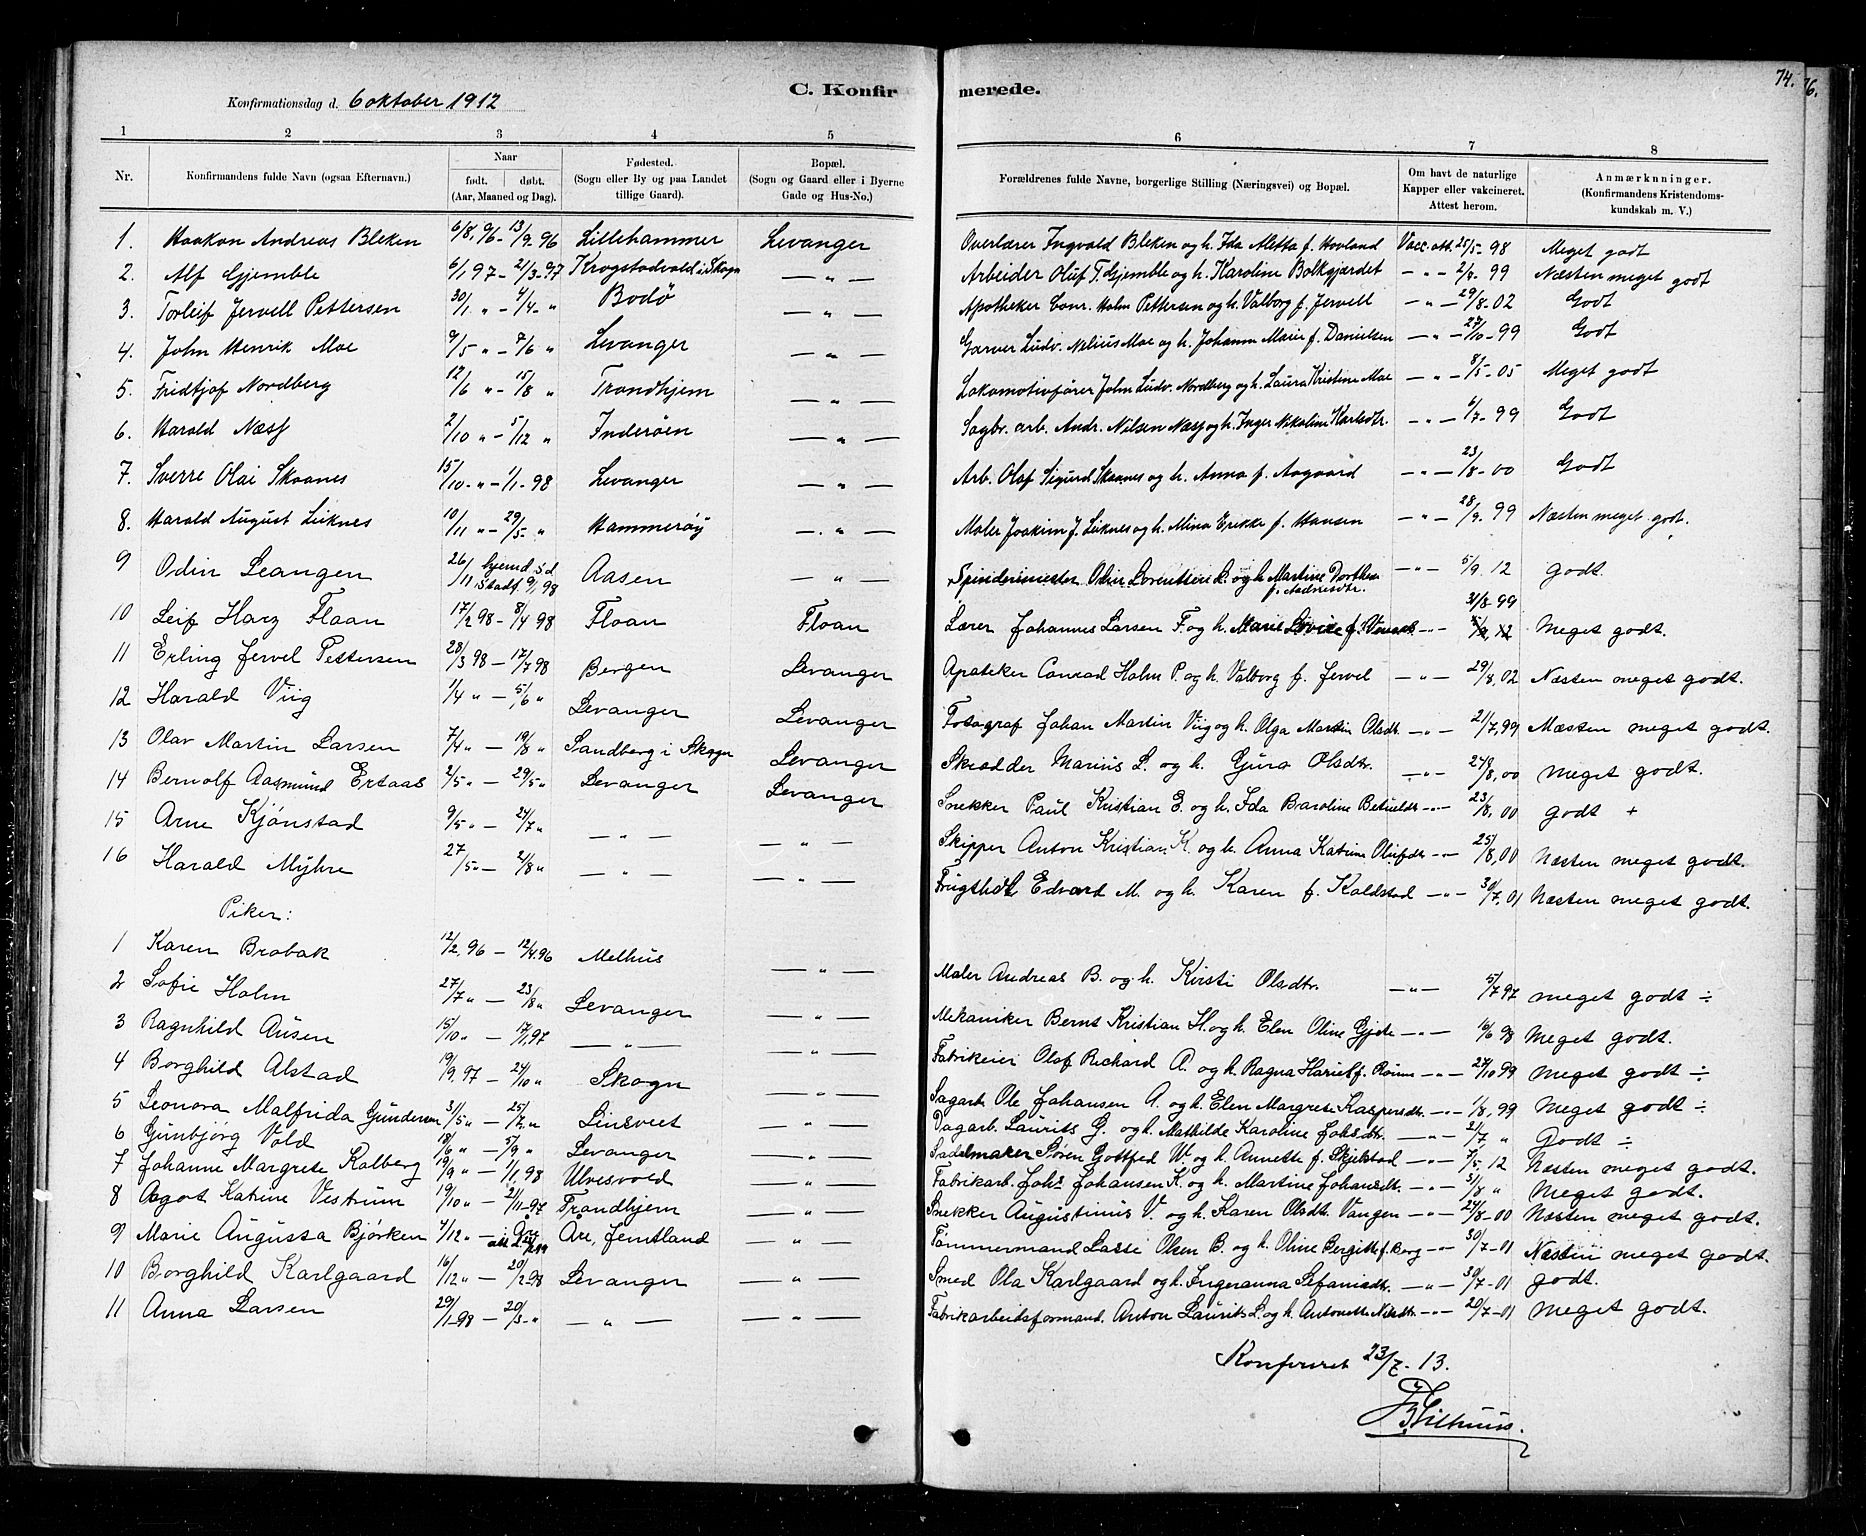 74.
76.
Konfirmationsdag d. 6 oktober 1912
C. Konfirmerede.
1 2 3 4 5 6 7 8
Nr. Konfirmandens fulde Navn (ogsaa Efternavn). Naar født. døbt. (Aar, Maaned og Dag). Fødested. (Sogn eller By og paa Landet tillige Gaard). Bopæl. (Sogn og Gaard eller i Byerne Gade og Hus-No.) Forældrenes fulde Navne, borgerlige Stilling (Næringsvei) og Bopæl. Om havt de naturlige Kapper eller vakcineret. Attest herom. Anmærkninger. (Konfirmandens Kristendomskundskab m. V.)
1. Haakon Andreas Bleken 6/8 96 – 13/9 96 Lillehammer Levanger Overlærer Ingvald Bleken og h. Ida Metta f. Hovland Vacc. att. 25/5 98 Meget godt
2. Alf Gjemble 6/1 97 – 21/3 97 Krogstadvald i Skogn — " — Arbeider Oluf T. Gjemble og h. Karoline Bolkgjærdet — " — 99 Næsten meget godt
3. Torleif Jervell Pettersen 30/1 " – 4/4 " Bodø — " — Apotheker Conr. Holm Pettersen og h. Valborg f. Jervell — " — 29/8 - 02 Godt
4. John Henrik Moe 9/5 " – 7/6 " Levanger — " — Garver Ludv. Nelius Moe og h. Johanna Marie f. Danielsen — " — 27/10 - 99 Godt
5. Fridtjof Nordberg 12/6 " – 15/8 " Trondhjem — " — Lokomotivfører John Ludv. Nordberg og h. Laura Kristine Moe — " — 8/5 - 05 Meget godt
6. Harald Næss 2/10 " – 5/12 " Inderøen — " — Sagbr. arb. Andr. Nilsen Næss og h. Inger Nikoline Karlsdtr. — " — 6/7 - 99 Godt
7. Sverre Olai Skaanes 15/10 " – 1/1 - 98 Levanger — " — Arb. Olaf Sigurd Skaanes og h. Anna f. Aagaard — " — 23/8 - 00 Godt
8. Harald August Leiknes 10/11 " – 29/5 " Hammerøy — " — Maler Joakim J. Leiknes og h. Mina Erikke f. Hansen — " — 28/9 99 Næsten meget godt.
9 Odin Leangen 26/11 hjemd. s.d. Stadf. 9/1 98 Aasen — " — Spindemester Odin Lorentsen L. og h. Martine Dorthea f. Andreasdtr. — " — 5/9 12 godt.
10 Leif Harz Floan 17/2 98 – 8/4 98 Floan Floan Lærer Johannes Larsen F. og h. Marie Lovise — " — 31/8 - 99 Meget godt.
11 Erling Jervel Pettersen 28/3 98 – 17/7 98 Bergen Levanger Apoteker Conrad Holm P. og h. Valborg f. Jervel — " — 29/8, 02 Næsten meget godt.
12 Harald Viig 1/4 " – 5/6 " Levanger Levanger Fotograf Johan Martin Viig og h. Olga Martin Olsdtr. — " — 21/7, 99 Næsten meget godt.
13 Olav Martin Larsen 7/4 " – 19/8 " Sandberg i Skogn Levanger Skrædder Marius L. og h. Gjura Olsdtr. — " — 24/8, 00 meget godt.
14 Bernolf Aasmund Ertaas 2/5 " – 29/5 " Levanger Levanger Snekker Paul Kristian E. og h. Ida Baroline — " — 23/8, 00 godt +
15 Arne Kjønstad 9/5 " – 24/7 " — " — — " — Skipper Anton Kristian K. og h. Anna Katrine Olufdtr. — " — 25/8, 00 Næsten meget godt.
16 Harald Myhre 27/5 " – 2/8 " — " — — " — Edvard M. og h. Karen f. Koldstad — " — 30/7, 01 Næsten meget godt.
Piker:
1 Karen Brobak 12/2, 96 – 12/4 96 Melhus — " — Maler Andreas B. og h. Kirsti Olsdtr. — " — 5/7 97 meget godt ÷
2 Sofie Holm 27/7 " – 23/8 " Levanger — " — Mekaniker Bernt Kristian H. og h. Elen Oline Gjeite — " — 16/6 98 Meget godt.
3 Ragnhild Ausen 15/10 " – 17/1, 97 — " — — " — Fabrikeier Olaf Richard A. og h. Ragna Hariet f. — " — 27/10 99 Meget godt ÷
4 Borghild Alstad 19/9, 97 – 24/10 " Skogn — " — Sagarb. Ole Johansen A. og h. Elen Margrete Kaspersdtr. — " — 1/8, 99 Meget godt ÷
5 Leonora Malfrida Gundersen 31/5 " – 25/7 " Linsveet — " — Dagarb. Laurits G. og h. Mathilde Karoline Johsdtr. — " — 21/7 " Godt ÷
6 Gunbjørg Vold 18/6 " – 5/9 " Levanger — " — Sadelmaker Søren Gottfred W. og h. Annette f. Skjelstad — " — 7/5 12 Næsten meget godt.
7 Johanne Margrete Kalberg 19/9 " – 1/1, 98 Ulvesvold — " — Fabrikarb. Johs. Johansen K. og h. Martine Johansdtr. — " — 31/8 " Meget godt.
8 Aagot Katrine Vestrum 19/10 " – 21/11 - 97 Trondhjem — " — Snekker Augustinus V. og h. Karen Olsdtr. Vangen — " — 24/8 - 00 Næsten meget godt.
9 Marie Augusta Bjørken 4/12 " – i Åre Are, Jemtland — " — Tømmermand Lasse Olsen B. og h. Oline Bergitte f. Berg — " — 30/7 - 01 Næsten meget godt.
10 Borghild Karlgaard 16/12 " – 20/2 - 98 Levanger — " — Smed Ola Karlgaard og h. Ingeranna Sefaniasdtr. — " — 30/7 - 01 godt.
11 Anna Larsen 29/1 - 98 – 20/3 - " — " — — " — Fabrikarbeidsformand Anton Laurits L. og h. Antonette Nilsdtr. — " — 20/7 - 01 Meget godt.
Konfereret 23/7 - 13.